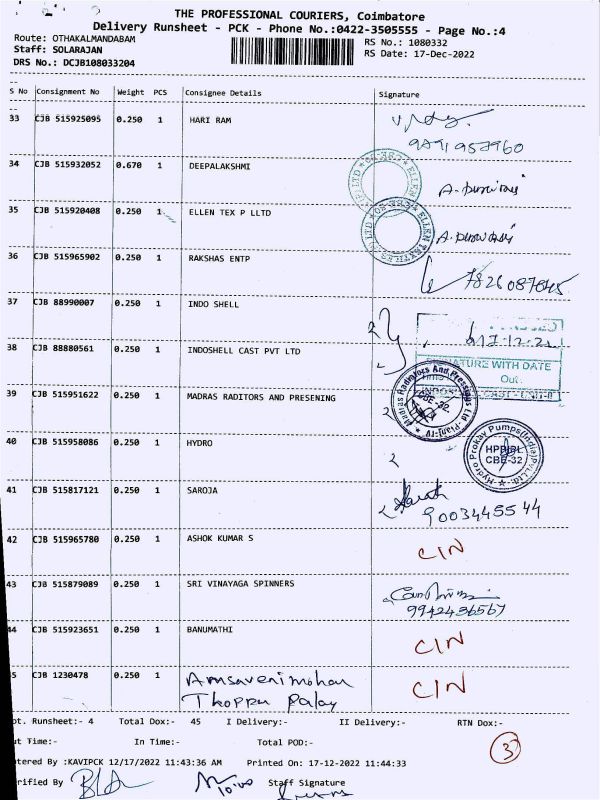 THE PROFESSIONAL COURIERS, Coimbatore
Delivery Runsheet - PCK - Phone No.:0422-3505555 - Page No.:4
Route: OTHAKALMANDABAM
RS No.: 1080332
Staff: SOLARAJAN
RS Date: 17-Dec-2022
DRS No.: DCJB108033204
S No Consignment No Weight PCS Consignee Details Signature
33 CJB 515925095 0.250 1 HARI RAM
34 CJB 515932052 0.670 1 DEEPALAKSHMI
35 CJB 515920408 0.250 1 ELLEN TEX P LLTD
36 CJB 515965902 0.250 1 RAKSHAS ENTP 7826087845
37 CJB 88990007 0.250 1 INDO SHELL
38 CJB 88880561 0.250 1 INDOSHELL CAST PVT LTD
SIGNATURE WITH DATE
Out:
39 CJB 515951622 0.250 1 MADRAS RADITORS AND PRESENING
Madras Radiators And Pressings Ltd
40 CJB 515958086 0.250 1 HYDRO
Hydro Prokav Pumps(India)Pvt.Ltd.
HPPIPL
CBE-32
41 CJB 515817121 0.250 1 SAROJA
9003445544
42 CJB 515965780 0.250 1 ASHOK KUMAR S CIN
43 CJB 515879089 0.250 1 SRI VINAYAGA SPINNERS
9942436567
44 CJB 515923651 0.250 1 BANUMATHI CIN
5 CJB 1230478 0.250 1 Amsavenimohan CIN
Thoppu Palay
pt. Runsheet:- 4 Total Dox:- 45 I Delivery:- II Delivery:- RTN Dox:-
3
ut Time:- In Time:- Total POD:-
tered By :KAVIPCK 12/17/2022 11:43:36 AM Printed On: 17-12-2022 11:44:33
rified By Staff Signature